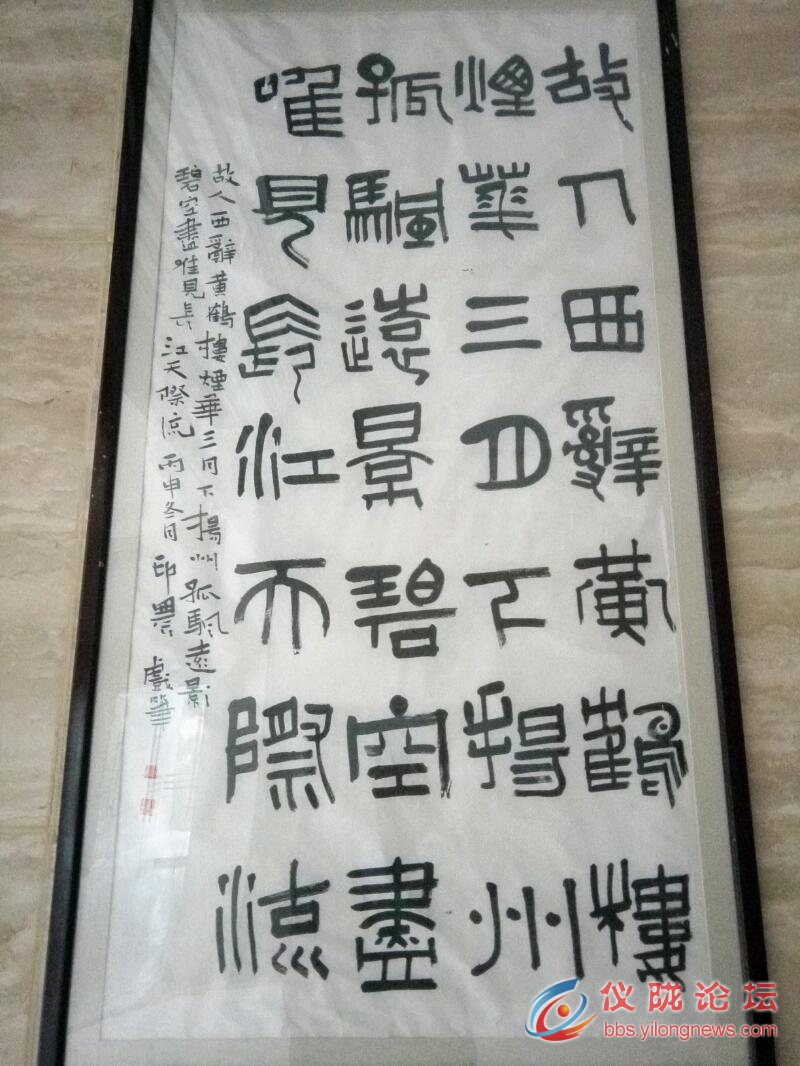 故人西辭黃鶴樓
煙華三月下揚州
孤颿遠景碧空盡
唯見長江天際流
故人西辭黃鶴樓煙華三月下揚州孤颿遠影
碧空盡唯見長江天際流 丙申冬月 邱農 戲筆
仪陇论坛
bbs.yilongnews.com